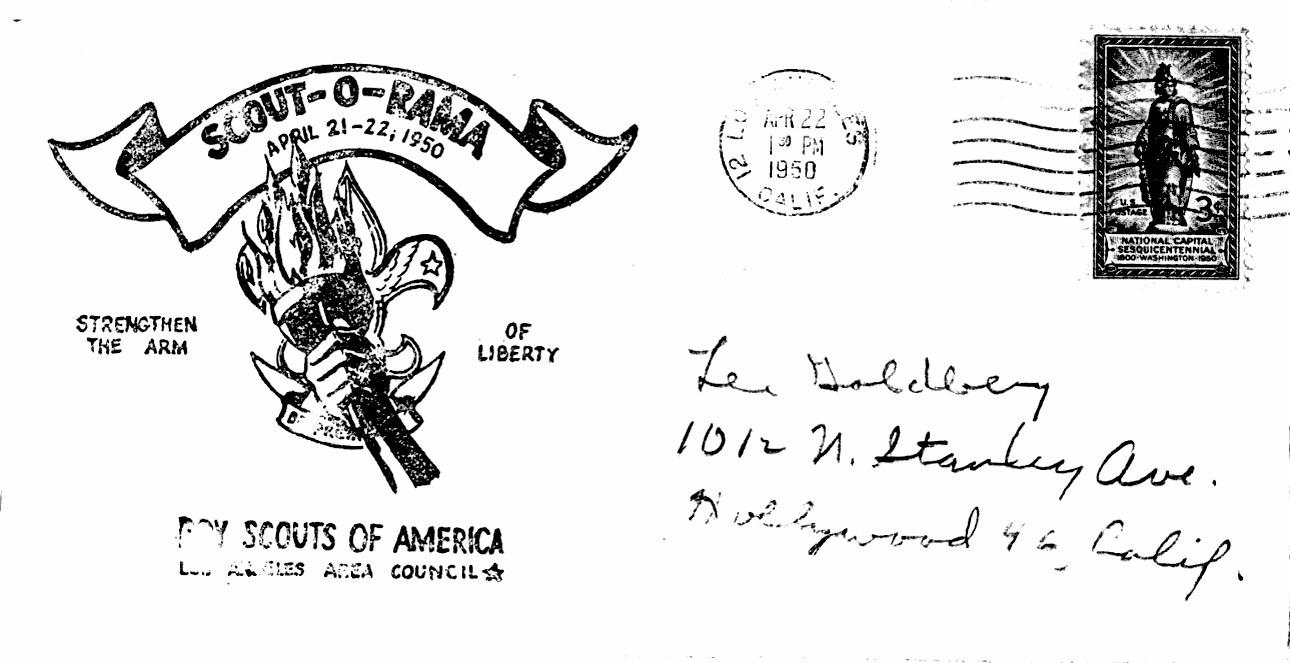 SCOUT-O-RAMA
APRIL 21-22, 1950
STRENGTHEN
THE ARM
OF
LIBERTY
BOY SCOUTS OF AMERICA
LOS ANGELES AREA COUNCIL
12
APR 22
1 30 PM
1950
CALIF.
U.S.
POSTAGE
3¢
NATIONAL CAPITAL
SESQUICENTENNIAL
1800-WASHINGTON-1950
Lee Goldberg
1012 N. Stanley Ave.
Hollywood 46, Calif.